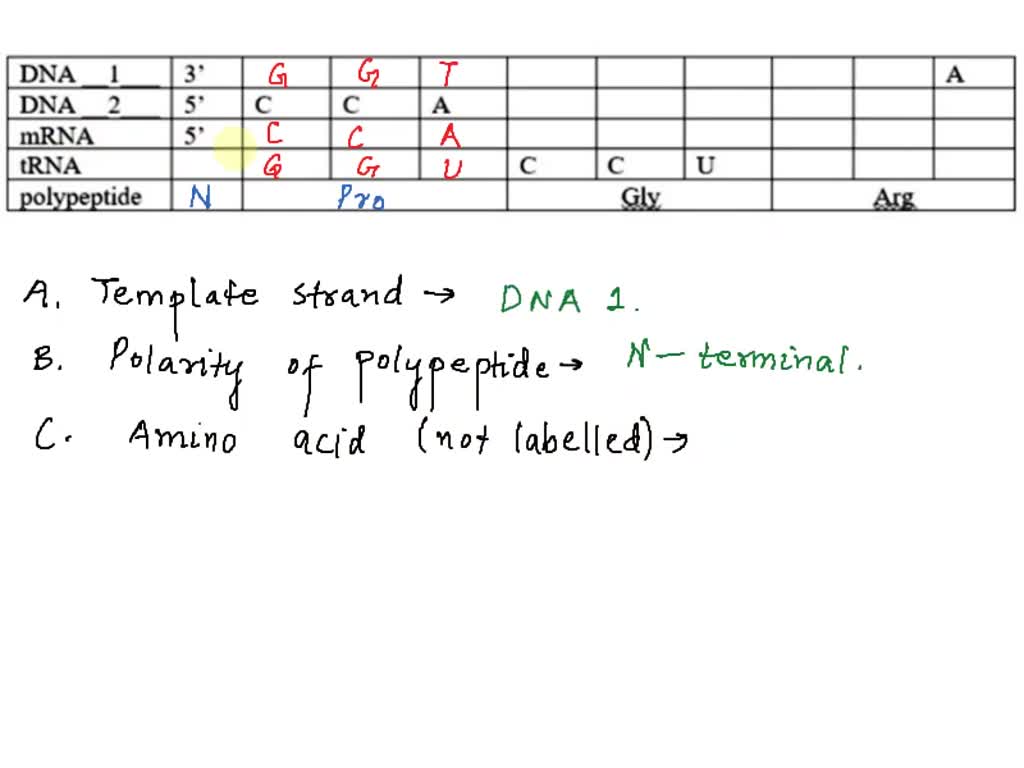 DNA __1__ 3' G G T A
DNA __2__ 5' C C A
mRNA 5' C C A
tRNA G G U C C U
polypeptide N Pro Gly Arg
A. Template strand → DNA 1.
B. Polarity of polypeptide → N-terminal.
C. Amino acid (not labelled) →